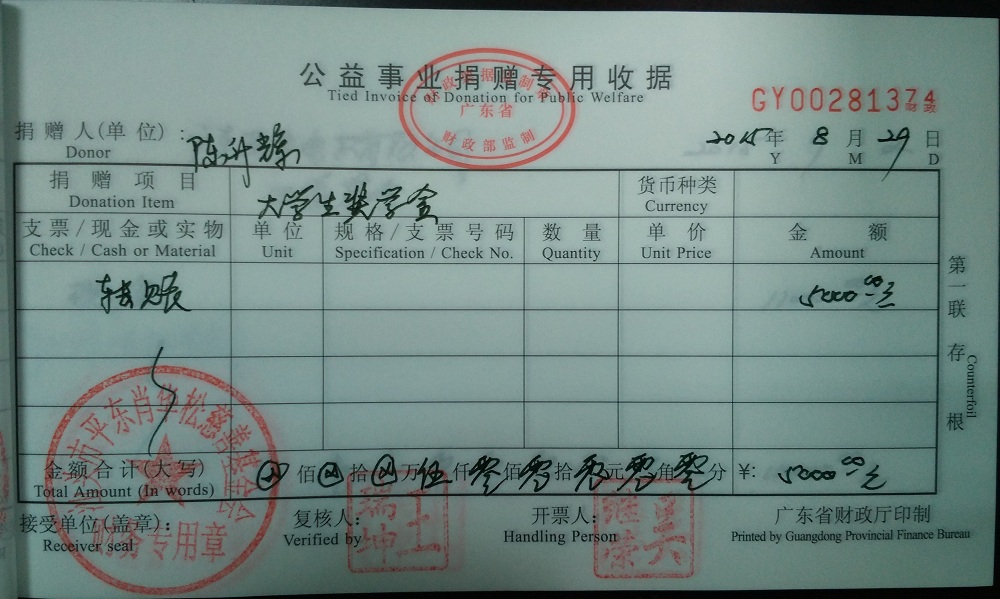 公益事业捐赠专用收据
Tied Invoice of Donation for Public Welfare
广东省
财政部监制
GY00281374
捐赠人(单位): 陈升豪
Donor
2015年 8月 29日
Y M D
捐赠项目 大学生奖学金 货币种类
Donation Item Currency
支票/现金或实物 单位 规格/支票号码 数量 单价 金额
Check / Cash or Material Unit Specification / Check No. Quantity Unit Price Amount
转账 5000.00元
第一联 存根
Counterfoil
金额合计(大写) 佰 拾 万 伍仟 零佰 零拾 零元 零角 零分 ¥: 5000.00元
Total Amount (In words)
接受单位(盖章): 复核人: 开票人: 广东省财政厅印制
Receiver seal Verified by Handling Person Printed by Guangdong Provincial Finance Bureau
市平东肖华松慈善基金会
财务专用章
王瑞坤